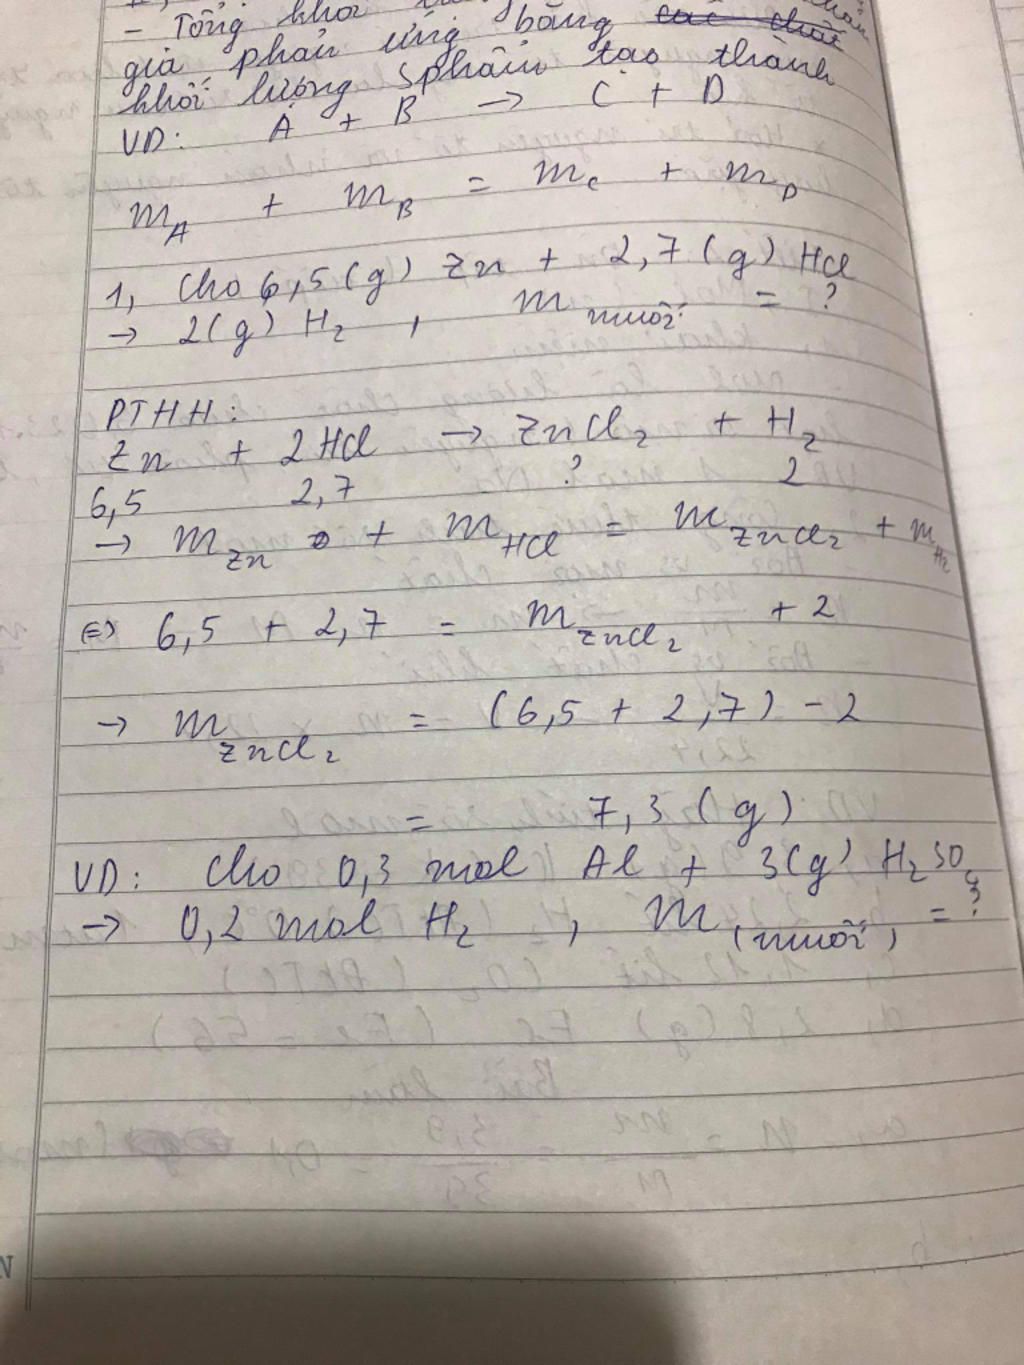 - Tổng khối
gia phản ứng bằng các chất
khối lượng sphẩm tạo thành
VD: A + B → C + D
mA + mB = mC + mD
1, Cho 6,5(g) Zn + 2,7(g) HCl
→ 2(g) H2 , m muối = ?
PTHH:
Zn + 2HCl → ZnCl2 + H2
6,5 2,7 ? 2
→ mZn + mHCl = mZnCl2 + mH2
⇔ 6,5 + 2,7 = mZnCl2 + 2
→ mZnCl2 = (6,5 + 2,7) - 2
= 7,3(g)
VD: Cho 0,3 mol Al + 3(g) H2SO4
→ 0,2 mol H2 , m(muối) = ?
N